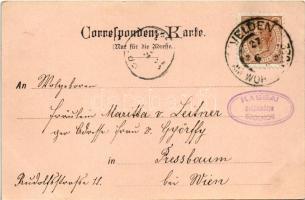 Correspondenz-Karte.
(Nur für die Adresse.
VELDEN
An Wolgeboren
Fräulein Maritka v. Leitner
per Adresse Frau v. Györffy
in Pressbaum
Rudolfstrasse 11. bei Wien